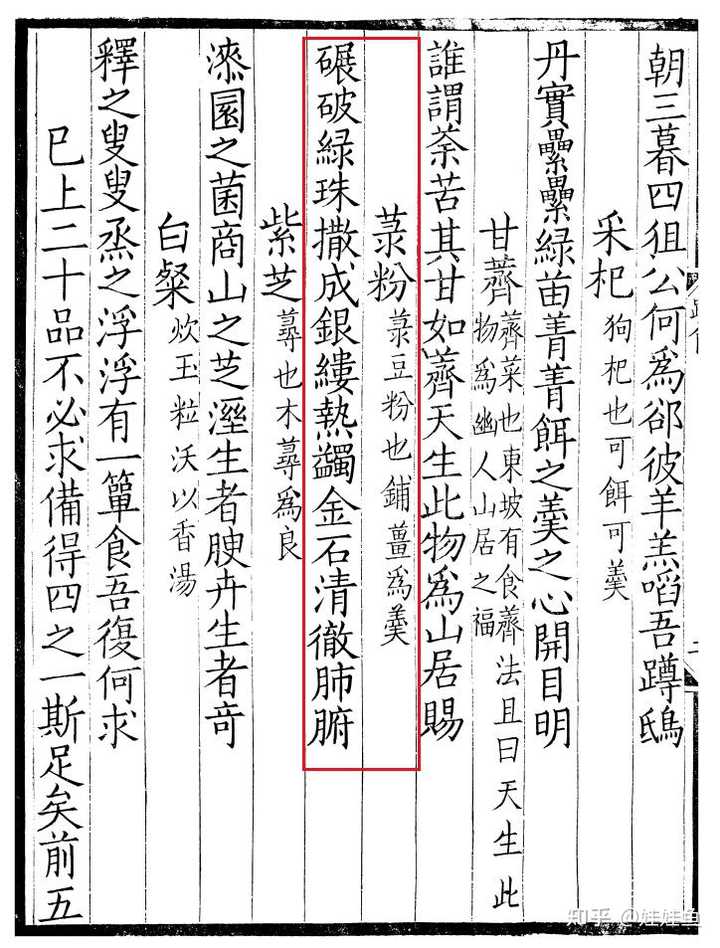 朝三暮四狙公何爲郤彼羊羔啗吾蹲鴟
采杞 狗杞也可餌可羹
丹實纍纍綠苗菁菁餌之羹之心開目明
甘薺 薺菜也東坡有食薺法且曰天生此
物爲幽人山居之福
誰謂荼苦其甘如薺天生此物爲山居賜
菉粉 菉豆粉也鋪薑爲羹
碾破綠珠撒成銀縷熱蠲金石清徹肺腑
紫芝 蕈也木蕈爲良
漆園之菌商山之芝溼生者腴卉生者奇
白粲 炊玉粒沃以香湯
釋之叟叟烝之浮浮有一簞食吾復何求
已上二十品不必求備得四之一斯足矣前五
知乎 @娃娃鱼